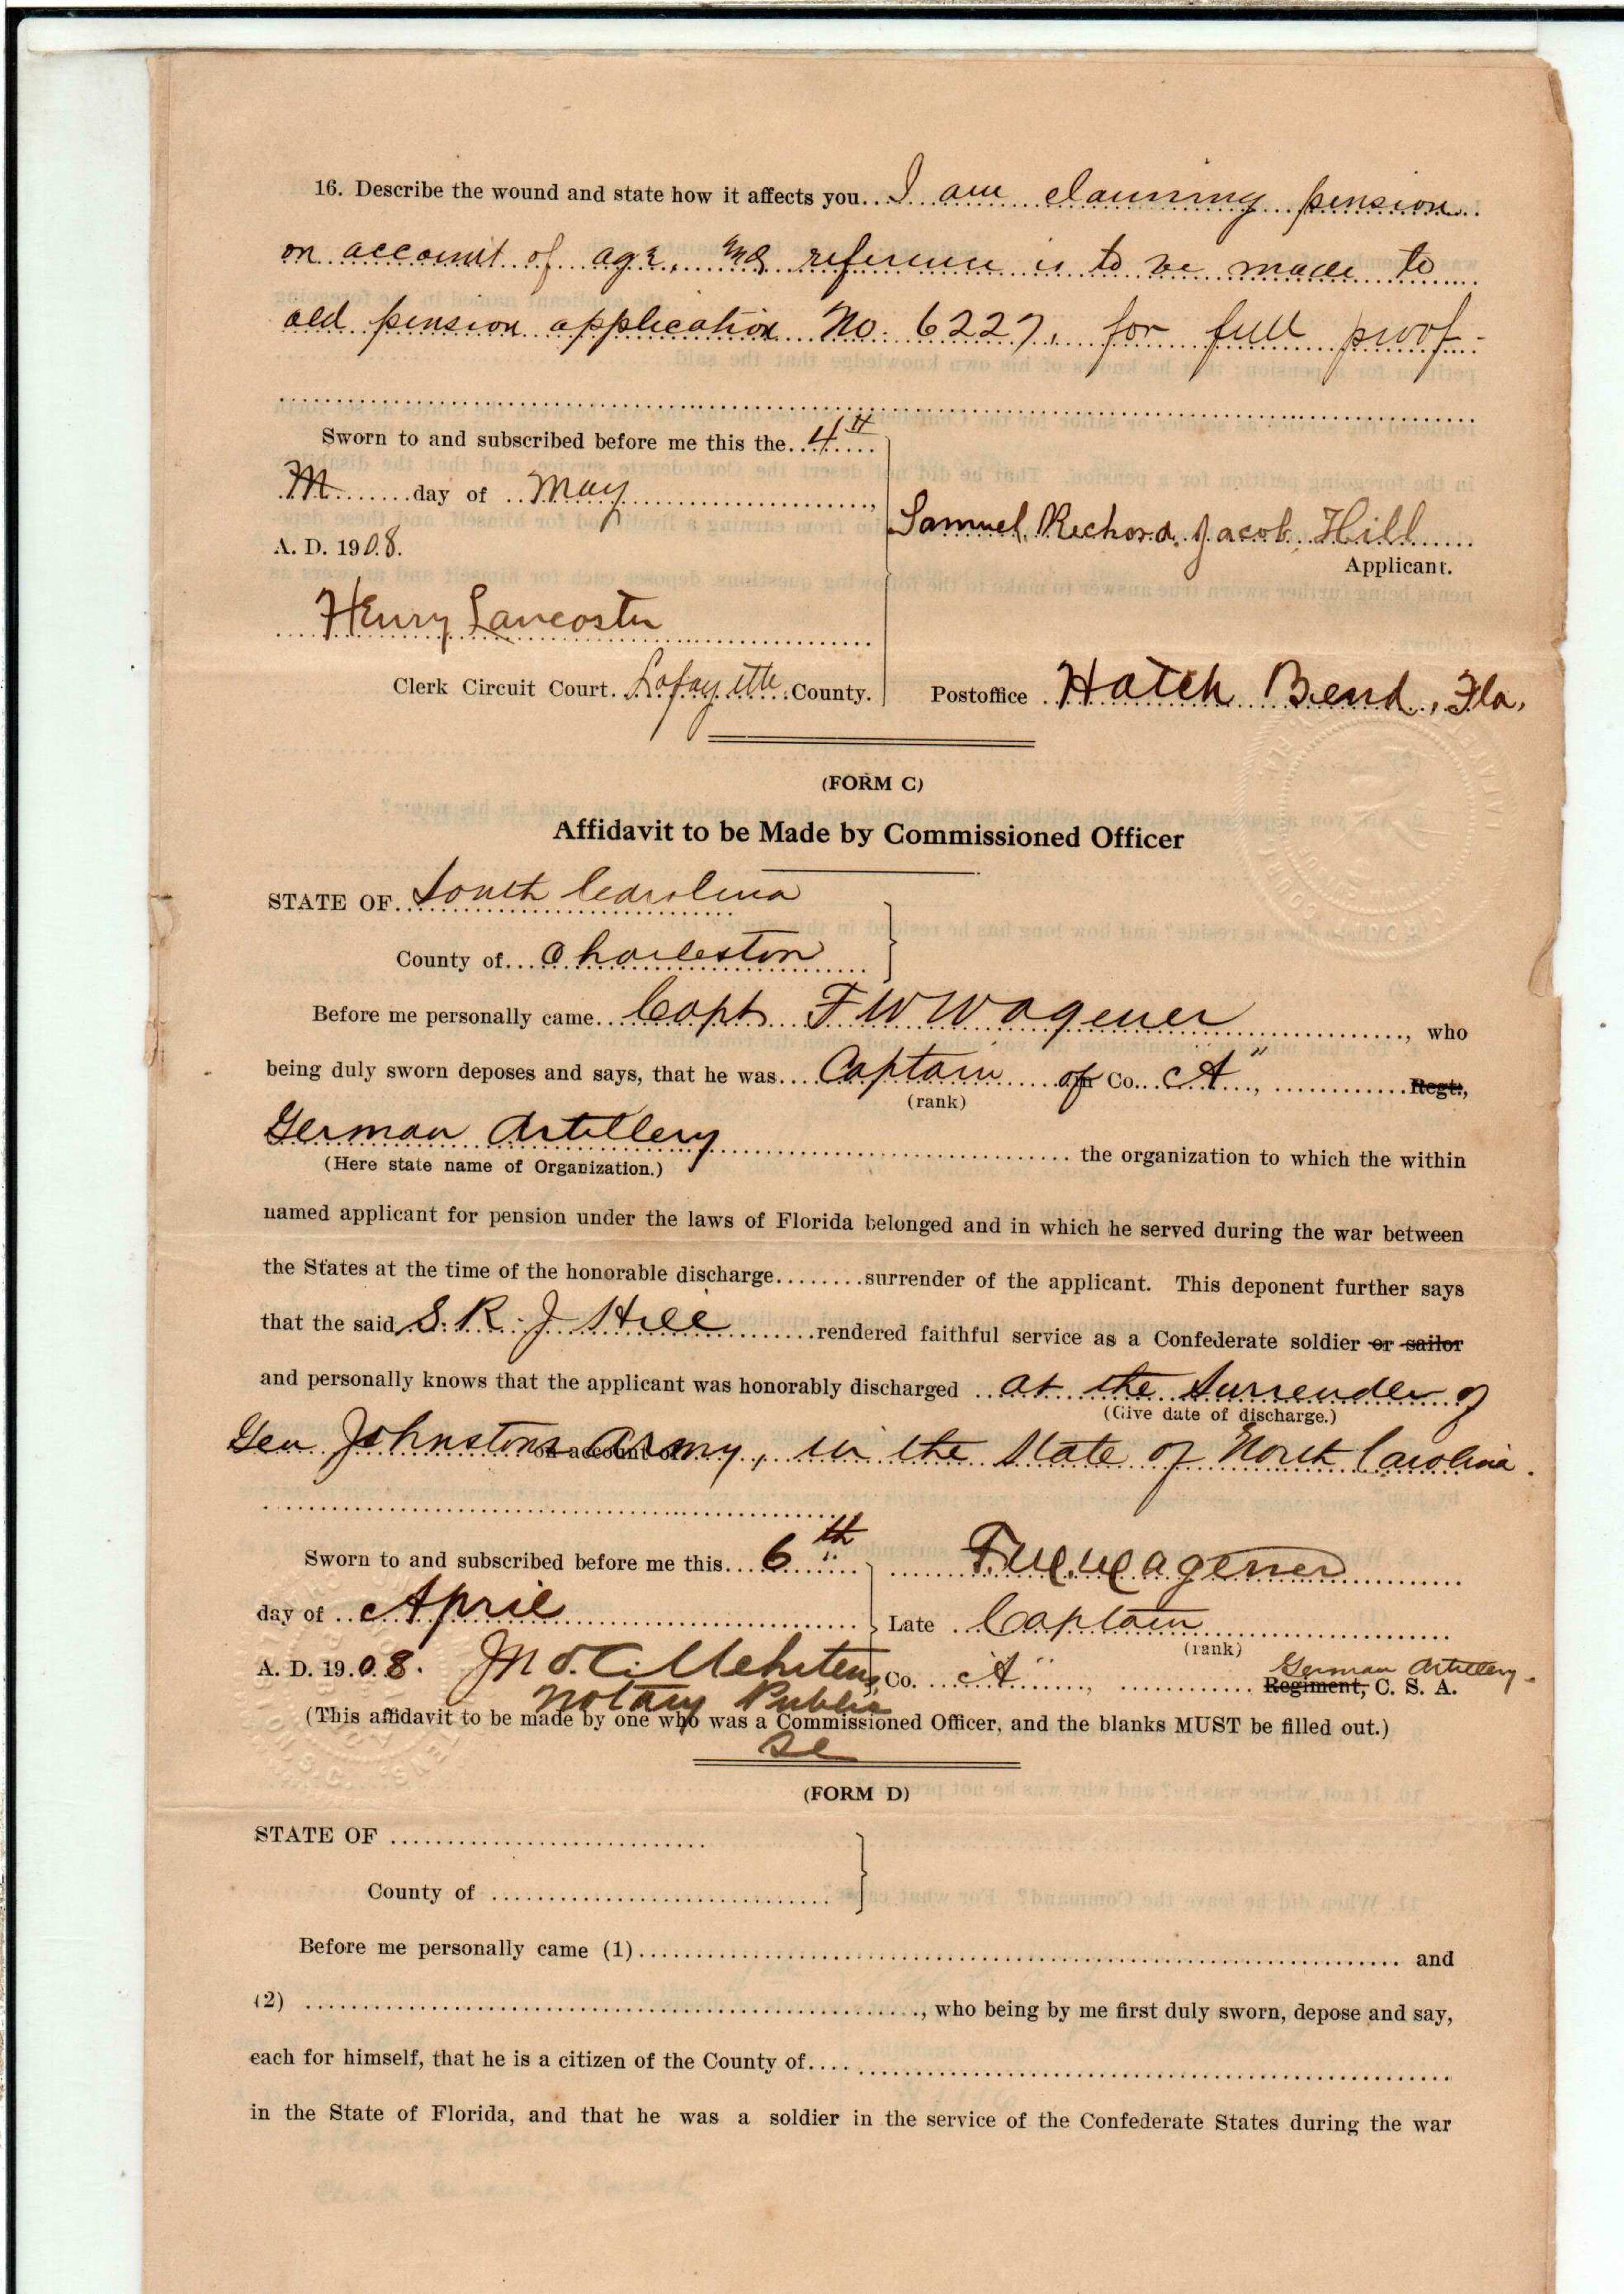 16. Describe the wound and state how it affects you.. I am claiming pension
on account of age, and reference is to be made to
old pension application No. 6227, for full proof.
Sworn to and subscribed before me this the 4th
day of May
A. D. 1908.
Samuel Richard Jacob Hill
Applicant.
Henry Lancaster
Clerk Circuit Court. Lafayette County.
Postoffice Hatch Bend, Fla,
(FORM C)
Affidavit to be Made by Commissioned Officer
STATE OF South Carolina
County of Charleston
Before me personally came Capt F W Wagener, who
being duly sworn deposes and says, that he was Captain of Co. "A", Regt.,
(rank)
German Artillery the organization to which the within
(Here state name of Organization.)
named applicant for pension under the laws of Florida belonged and in which he served during the war between
the States at the time of the honorable discharge........surrender of the applicant. This deponent further says
that the said S. R. J Hill rendered faithful service as a Confederate soldier or sailor
and personally knows that the applicant was honorably discharged at the Surrender of
(Give date of discharge.)
Gen Johnstons Army, in the State of North Carolina.
on account of
Sworn to and subscribed before me this 6th
F. W. Wagener
day of April
Late Captain
(rank)
A. D. 1908.
Co. "A" German Artillery
Regiment, C. S. A.
Notary Public
(This affidavit to be made by one who was a Commissioned Officer, and the blanks MUST be filled out.)
SC
(FORM D)
STATE OF
County of
Before me personally came (1) and
(2) , who being by me first duly sworn, depose and say,
each for himself, that he is a citizen of the County of
in the State of Florida, and that he was a soldier in the service of the Confederate States during the war